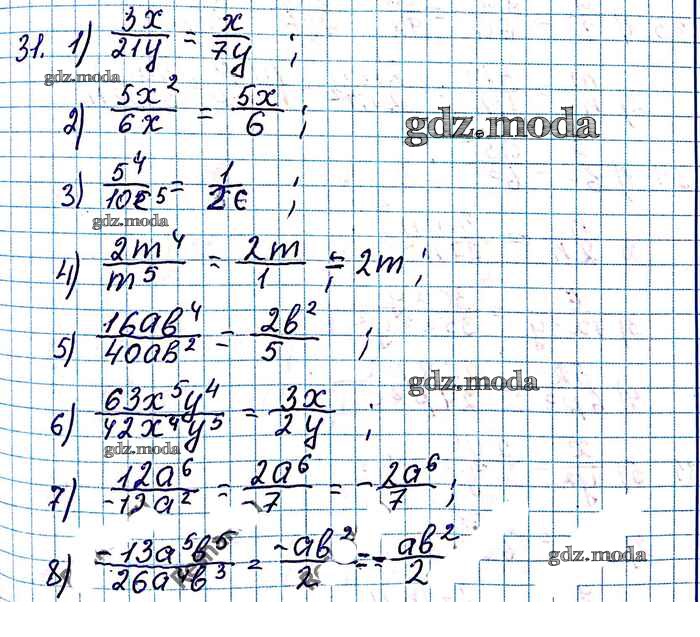 31. 1) 3x/21y = x/7y ;
gdz.moda
2) 5x²/6x = 5x/6 ;
gdz.moda
3) 5⁴/10c⁵ = 1/2c ;
gdz.moda
4) 2m⁴/m⁵ = 2m/1 = 2m ;
5) 16ab⁴/40ab² = 2b²/5 ;
gdz.moda
6) 63x⁵y⁴/42x⁴y⁵ = 3x/2y ;
gdz.moda
7) 12a⁶/-12a² = 2a⁶/-7 = -2a⁶/7 ;
8) -13a⁵b⁵/26a⁴b³ = -ab²/2 = -ab²/2
gdz.moda